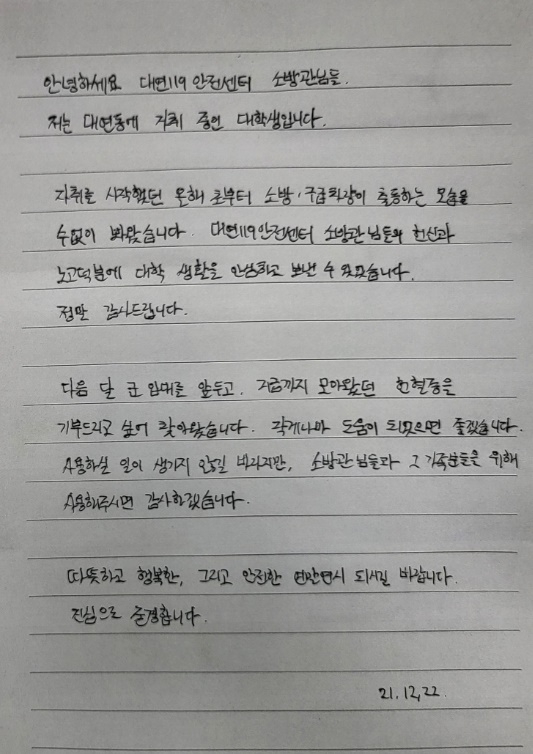 안녕하세요 대연119안전센터 소방관님들.
저는 대연동에 자취 중인 대학생입니다.
자취를 시작했던 올해 초부터 소방·구급차량이 출동하는 모습을
수없이 봐왔습니다. 대연119안전센터 소방관님들의 헌신과
노고덕분에 대학 생활을 안심하고 보낼 수 있었습니다.
정말 감사드립니다.
다음 달 군 입대를 앞두고, 지금까지 모아왔던 헌혈증을
기부드리고 싶어 찾아왔습니다. 작게나마 도움이 되었으면 좋겠습니다.
사용하실 일이 생기지 않길 바라지만, 소방관님들과 그 가족분들을 위해
사용해주시면 감사하겠습니다.
따뜻하고 행복한, 그리고 안전한 연말연시 되시길 바랍니다.
진심으로 존경합니다.
21.12.22.